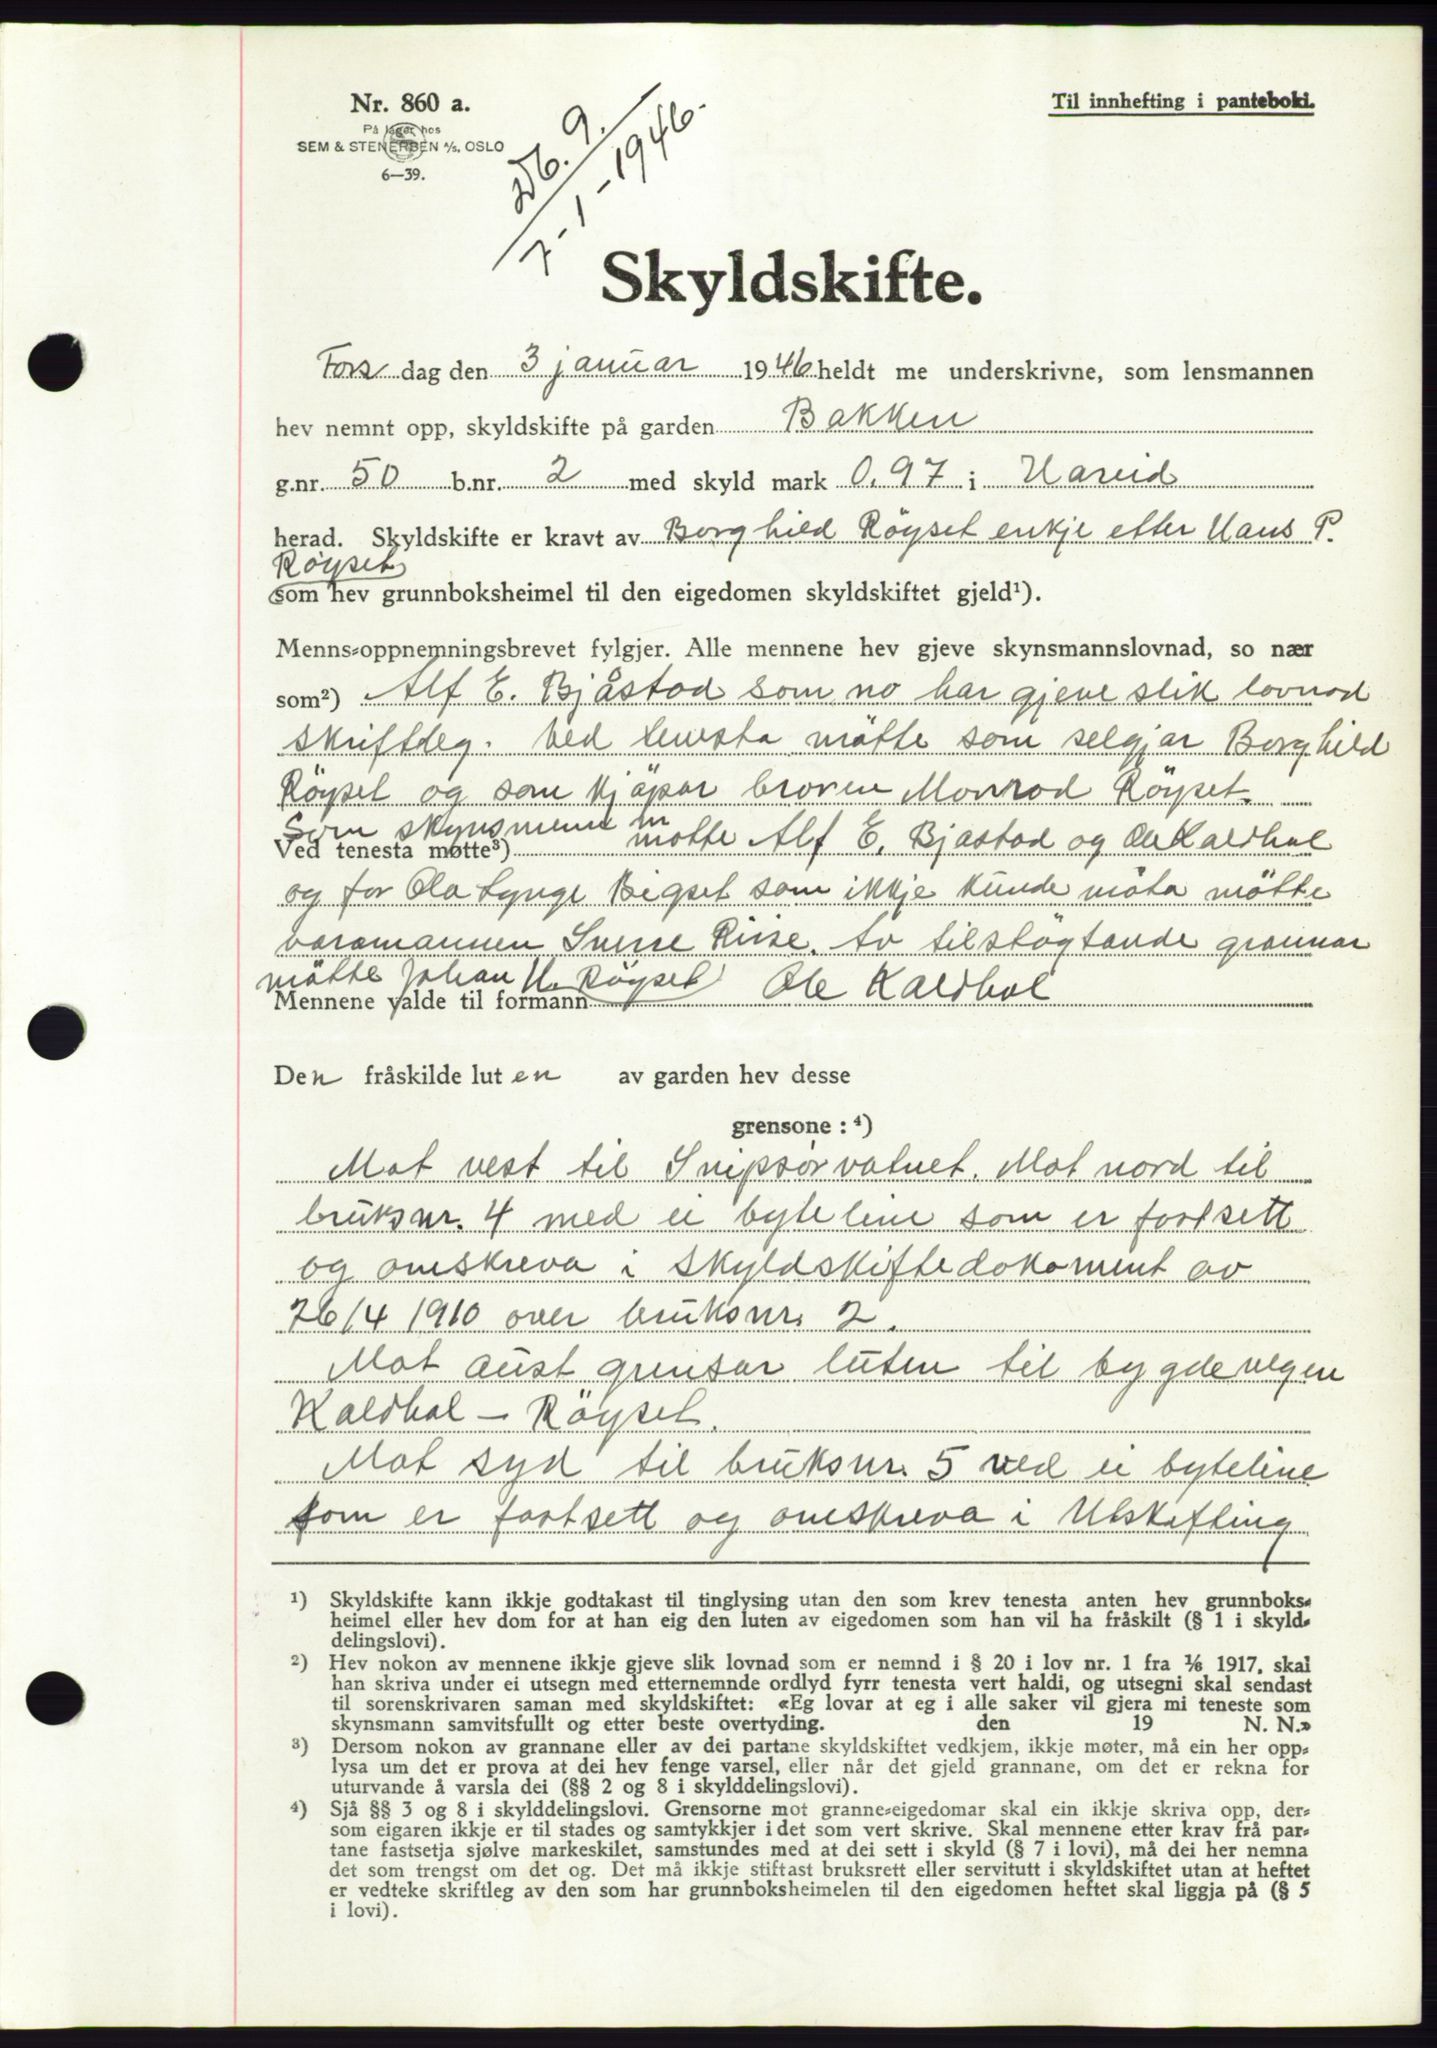 Nr. 860 a.
På lager hos
SEM & STENERSEN A/S, OSLO
6—39.
Til innhefting i panteboki.
Db. 9.
7-1-1946.
Skyldskifte.
Fors dag den 3 januar 1946 heldt me underskrivne, som lensmannen
hev nemnt opp, skyldskifte på garden Bakken
g.nr. 50 b.nr. 2 med skyld mark 0,97 i Hareid
herad. Skyldskifte er kravt av Borghild Röyset enkje etter Hans P.
Röyset
som hev grunnboksheimel til den eigedomen skyldskiftet gjeld¹).
Menns-oppnemningsbrevet fylgjer. Alle mennene hev gjeve skynsmannslovnad, so nær
som²) Alf E. Bjåstad som no har gjeve slik lovnad
skriftleg. Ved tenesta mötte som seljar Borghild
Röyset og som kjöpar broren Monrad Röyset.
Som skynsmenn m
Ved tenesta møtte³) motte Alf E. Bjåstad og Ole Kaldhol
og for Ola Lynge Bigset som ikkje kunde möta mötte
varamannen Sverre Riise. Av tilstöytande grannar
mötte Johan H. Röyset
Mennene valde til formann Ole Kaldhol
Den fråskilde luten av garden hev desse
grensone: ⁴)
Mot vest til Snipsörvatnet. Mot nord til
bruksnr. 4 med ei byteline som er fastsett
og omskreva i skyldskiftedokoment av
26/4 1910 over bruksnr. 2.
Mot aust grensar luten til bygdevegen
Kaldhol — Röyset.
Mot syd til bruksnr. 5 ved ei byteline
som er fastsett og omskreva i Utskifting
¹) Skyldskifte kann ikkje godtakast til tinglysing utan den som krev tenesta anten hev grunnboks-
heimel eller hev dom for at han eig den luten av eigedomen som han vil ha fråskilt (§ 1 i skyld-
delingslovi).
²) Hev nokon av mennene ikkje gjeve slik lovnad som er nemnd i § 20 i lov nr. 1 fra 1/6 1917, skal
han skriva under ei utsegn med etternemnde ordlyd fyrr tenesta vert haldi, og utsegni skal sendast
til sorenskrivaren saman med skyldskiftet: «Eg lovar at eg i alle saker vil gjera mi teneste som
skynsmann samvitsfullt og etter beste overtyding. den 19 N. N.»
³) Dersom nokon av grannane eller av dei partane skyldskiftet vedkjem, ikkje møter, må ein her opp-
lysa um det er prova at dei hev fenge varsel, eller når det gjeld grannane, om det er rekna for
uturvande å varsla dei (§§ 2 og 8 i skylddelingslovi).
⁴) Sjå §§ 3 og 8 i skylddelingslovi. Grensorne mot granne-eigedomar skal ein ikkje skriva opp, der-
som eigaren ikkje er til stades og samtykkjer i det som vert skrive. Skal mennene etter krav frå par-
tane fastsetja sjølve markeskilet, samstundes med at dei sett i skyld (§ 7 i lovi), må dei her nemna
det som trengst om det og. Det må ikkje stiftast bruksrett eller servitutt i skyldskiftet utan at heftet
er vedteke skriftleg av den som har grunnboksheimelen til den eigedomen heftet skal liggja på (§ 5
i lovi).